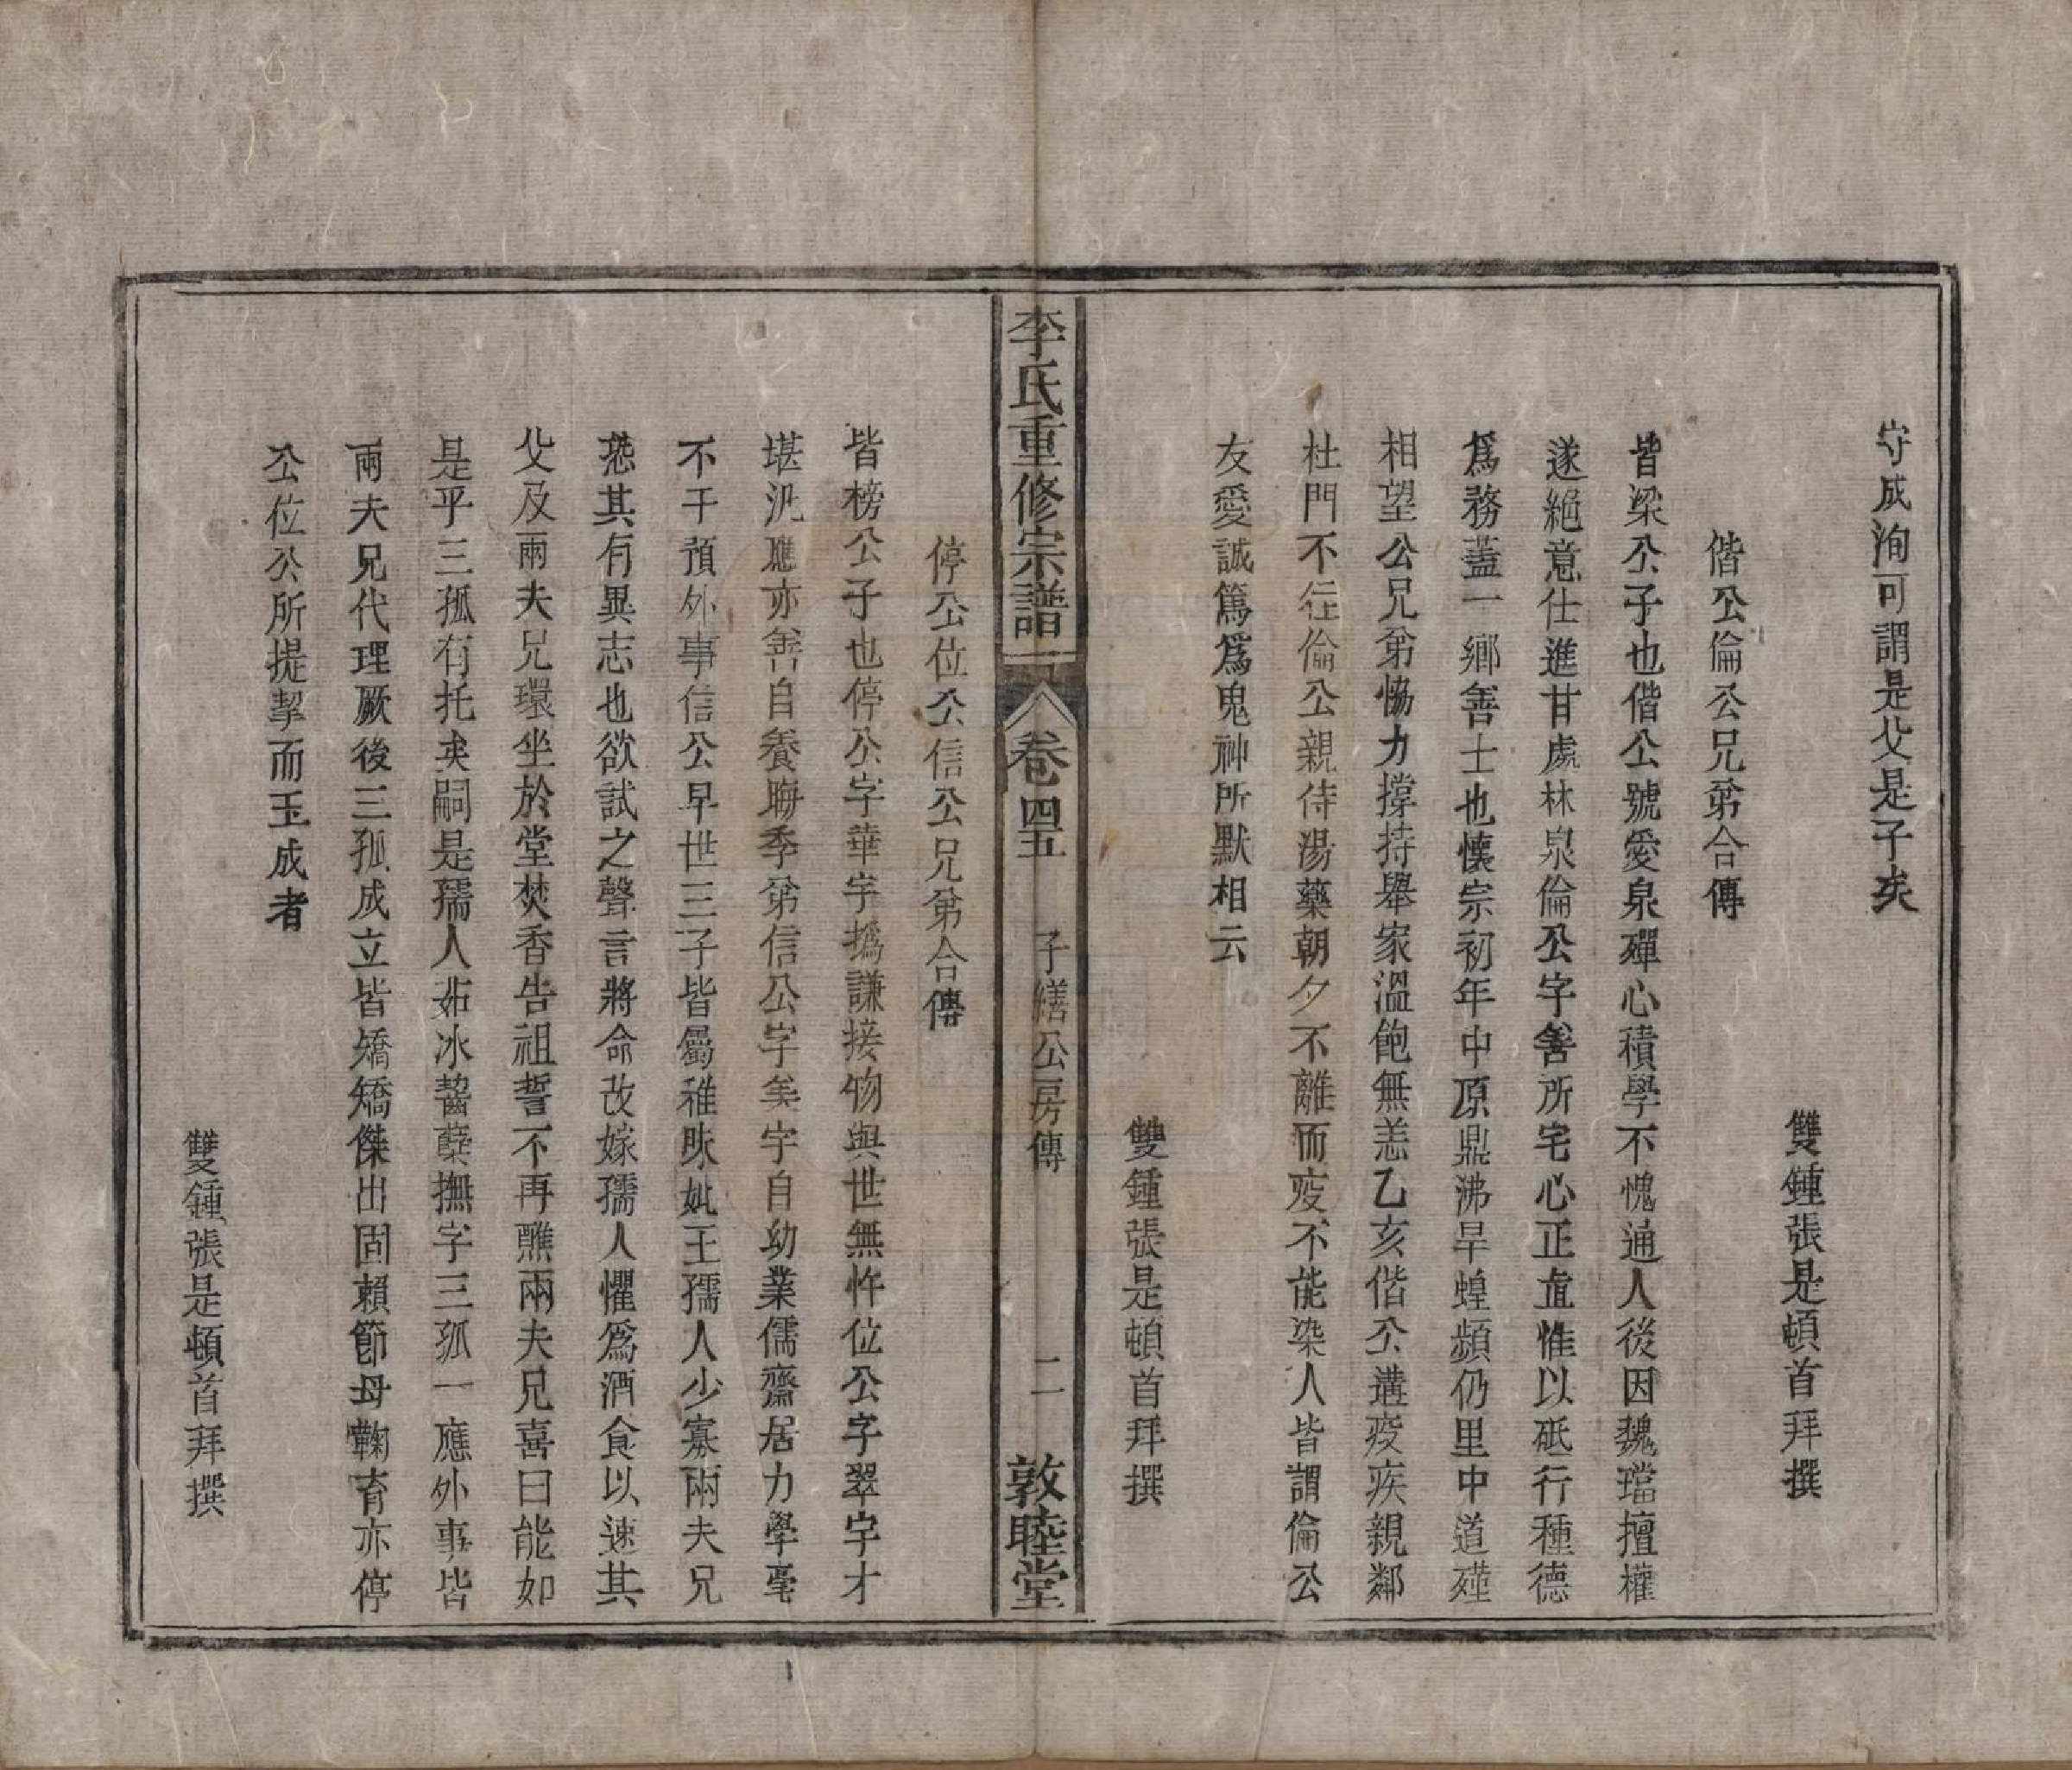 守成洵可謂是父是子矣
雙鍾張是頓首拜撰
偕公倫公兄弟合傳
皆梁公子也偕公號愛泉殫心積學不愧通人後因魏璫擅權
遂絕意仕進甘處林泉倫公字善所宅心正直惟以砥行種德
爲務蓋一鄉善士也懷宗初年中原鼎沸旱蝗頻仍里中道殣
相望公兄弟恊力撐持舉家溫飽無恙乙亥偕公遘疫疾親鄰
杜門不徃倫公親侍湯藥朝夕不離而疫不能染人皆謂倫公
友愛誠篤爲鬼神所默相云
雙鍾張是頓首拜撰
李氏重修宗譜一 卷四五 子繕公房傳 二 敦睦堂
停公位公信公兄弟合傳
皆榜公子也停公字華宇撝謙接物與世無忤位公字翠宇才
堪汎應亦善自養晦季弟信公字美宇自幼業儒齋居力學毫
不干預外事信公早世三子皆屬稚昧妣王孺人少寡兩夫兄
恐其有異志也欲試之聲言將命改嫁孺人懼爲酒食以速其
父及兩夫兄環坐於堂焚香告祖誓不再醮兩夫兄喜曰能如
是乎三孤有托矣嗣是孺人茹冰齧蘗撫字三孤一應外事皆
兩夫兄代理厥後三孤成立皆矯矯傑出固賴節母鞠育亦停
公位公所提挈而玉成者
雙鍾張是頓首拜撰